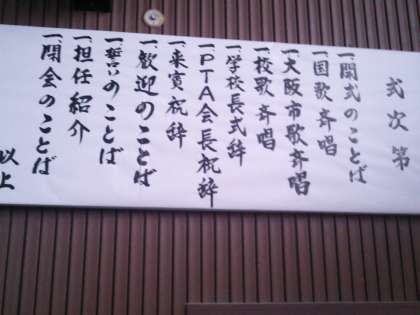 式次第
一、開式のことば
一、国歌斉唱
一、大阪市歌斉唱
一、校歌斉唱
一、学校長式辞
一、PTA会長祝辞
一、来賓祝辞
一、歓迎のことば
一、誓いのことば
一、担任紹介
一、閉会のことば
以上